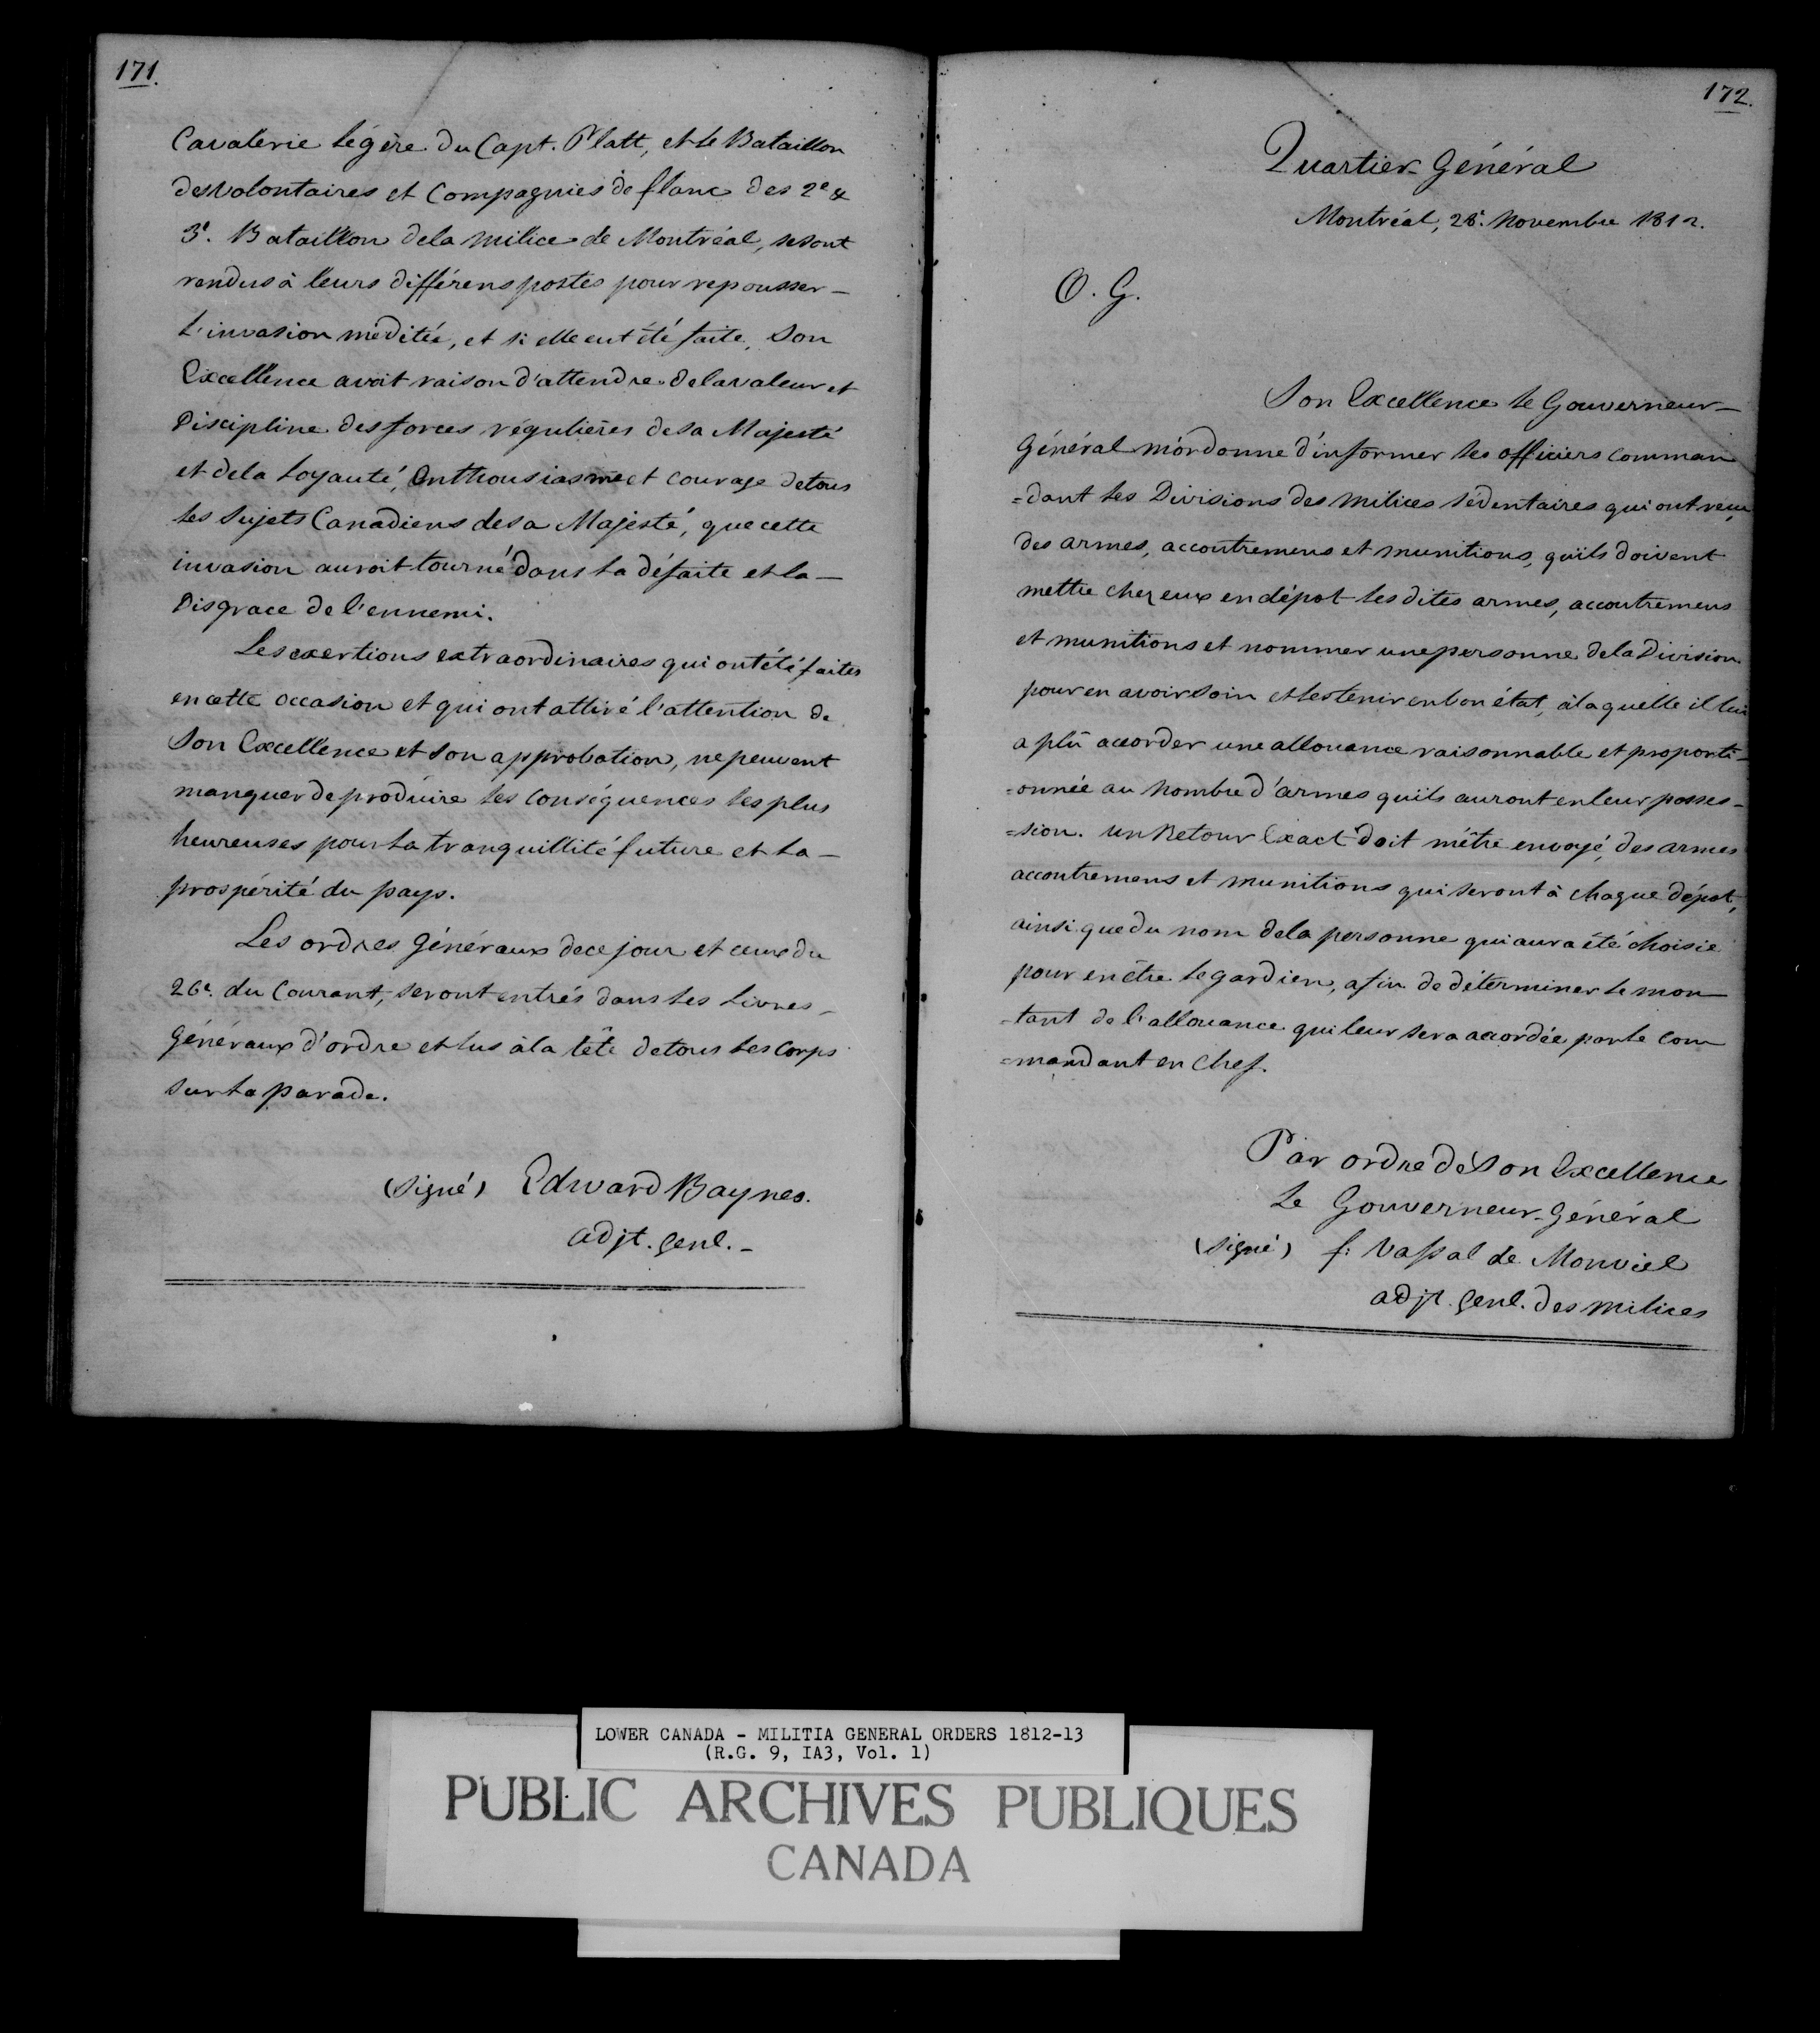 171.
Cavalerie légère du Capt. Platt, et le Bataillon
des volontaires et Compagnies de flanc des 2e &
3e. Bataillon de la milice de Montréal, se sont
rendus à leurs différens postes pour repousser –
l'invasion méditée, et si elle eut été faite, Son
Excellence avoit raison d'attendre de la valeur et
Discipline des forces régulières de sa Majesté
et de la Loyauté, Enthousiasme et courage de tous
les sujets Canadiens de sa Majesté, que cette
invasion auroit tourné dans la défaite et la –
Disgrace de l'ennemi.
Les exertions extraordinaires qui ont été faites
en cette occasion et qui ont attiré l'attention de
Son Excellence et son approbation, ne peuvent
manquer de produire les conséquences les plus
heureuses pour la tranquillité future et la –
prospérité du pays.
Les ordres Généraux de ce jour et ceux du
26e. du Courant, seront entrés dans les Livres –
Généraux d'ordre et lus à la tête de tous les Corps
sur la parade.
(signé) Edward Baynes.
adjt. genl. –
172.
Quartier-Général
Montréal, 28e. Novembre 1812.
O. G.
Son Excellence le Gouverneur –
Général m'ordonne d'informer les officiers comman
=dant les Divisions des milices sédentaires qui ont reçu
des armes, accoutremens et munitions, qu'ils doivent
mettre chez eux en dépot les dites armes, accoutremens
et munitions et nommer une personne de la Division
pour en avoir soin et les tenir en bon état, à laquelle il lui
a plû accorder une allouance raisonnable et proporti=
=onnée au nombre d'armes qu'ils auront en leur posses=
=sion. un Retour Exact doit m'être envoyé, des armes
accoutremens et munitions qui seront à chaque dépot,
ainsi que du nom de la personne qui aura été choisie
pour en être le gardien, afin de déterminer le mon
=tant de l'allouance qui leur sera accordée par le com
=mandant en Chef.
Par ordre de Son Excellence
Le Gouverneur-Général
(signé) f: Vassal de Monviel
adjt. genl. des milices
LOWER CANADA - MILITIA GENERAL ORDERS 1812-13
(R.G. 9, IA3, Vol. 1)
PUBLIC ARCHIVES PUBLIQUES
CANADA